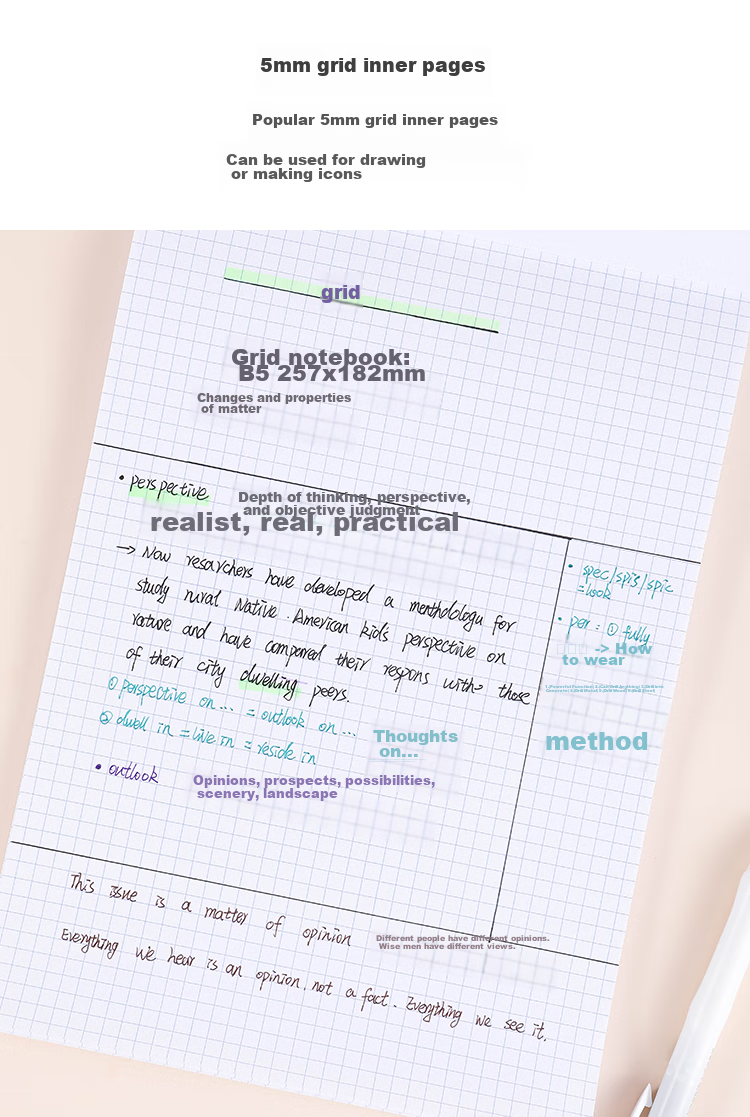 5mm grid inner pages
Popular 5mm grid inner pages
Can be used for drawing
or making icons
grid
Grid notebook:
B5 257x182mm
Changes and properties
of matter
• perspective
Depth of thinking, perspective,
and objective judgment
realist, real, practical
→ Now resarchers have developed a menthdologu for
study rural Native American kid's perspective on
rature and have compared their respons with those
of their city dwelling peers.
① perspective on... = outlook on...
② dwell in = live in = reside in
Thoughts
on...
• outlook
Opinions, prospects, possibilities,
scenery, landscape
• spec/spis/spic
=look
• per = ① fully
-> How
to wear
method
This issue is a matter of opinion
Different people have different opinions.
Wise men have different views.
Everything we hear is an opinion, not a fact. Everything we see it.